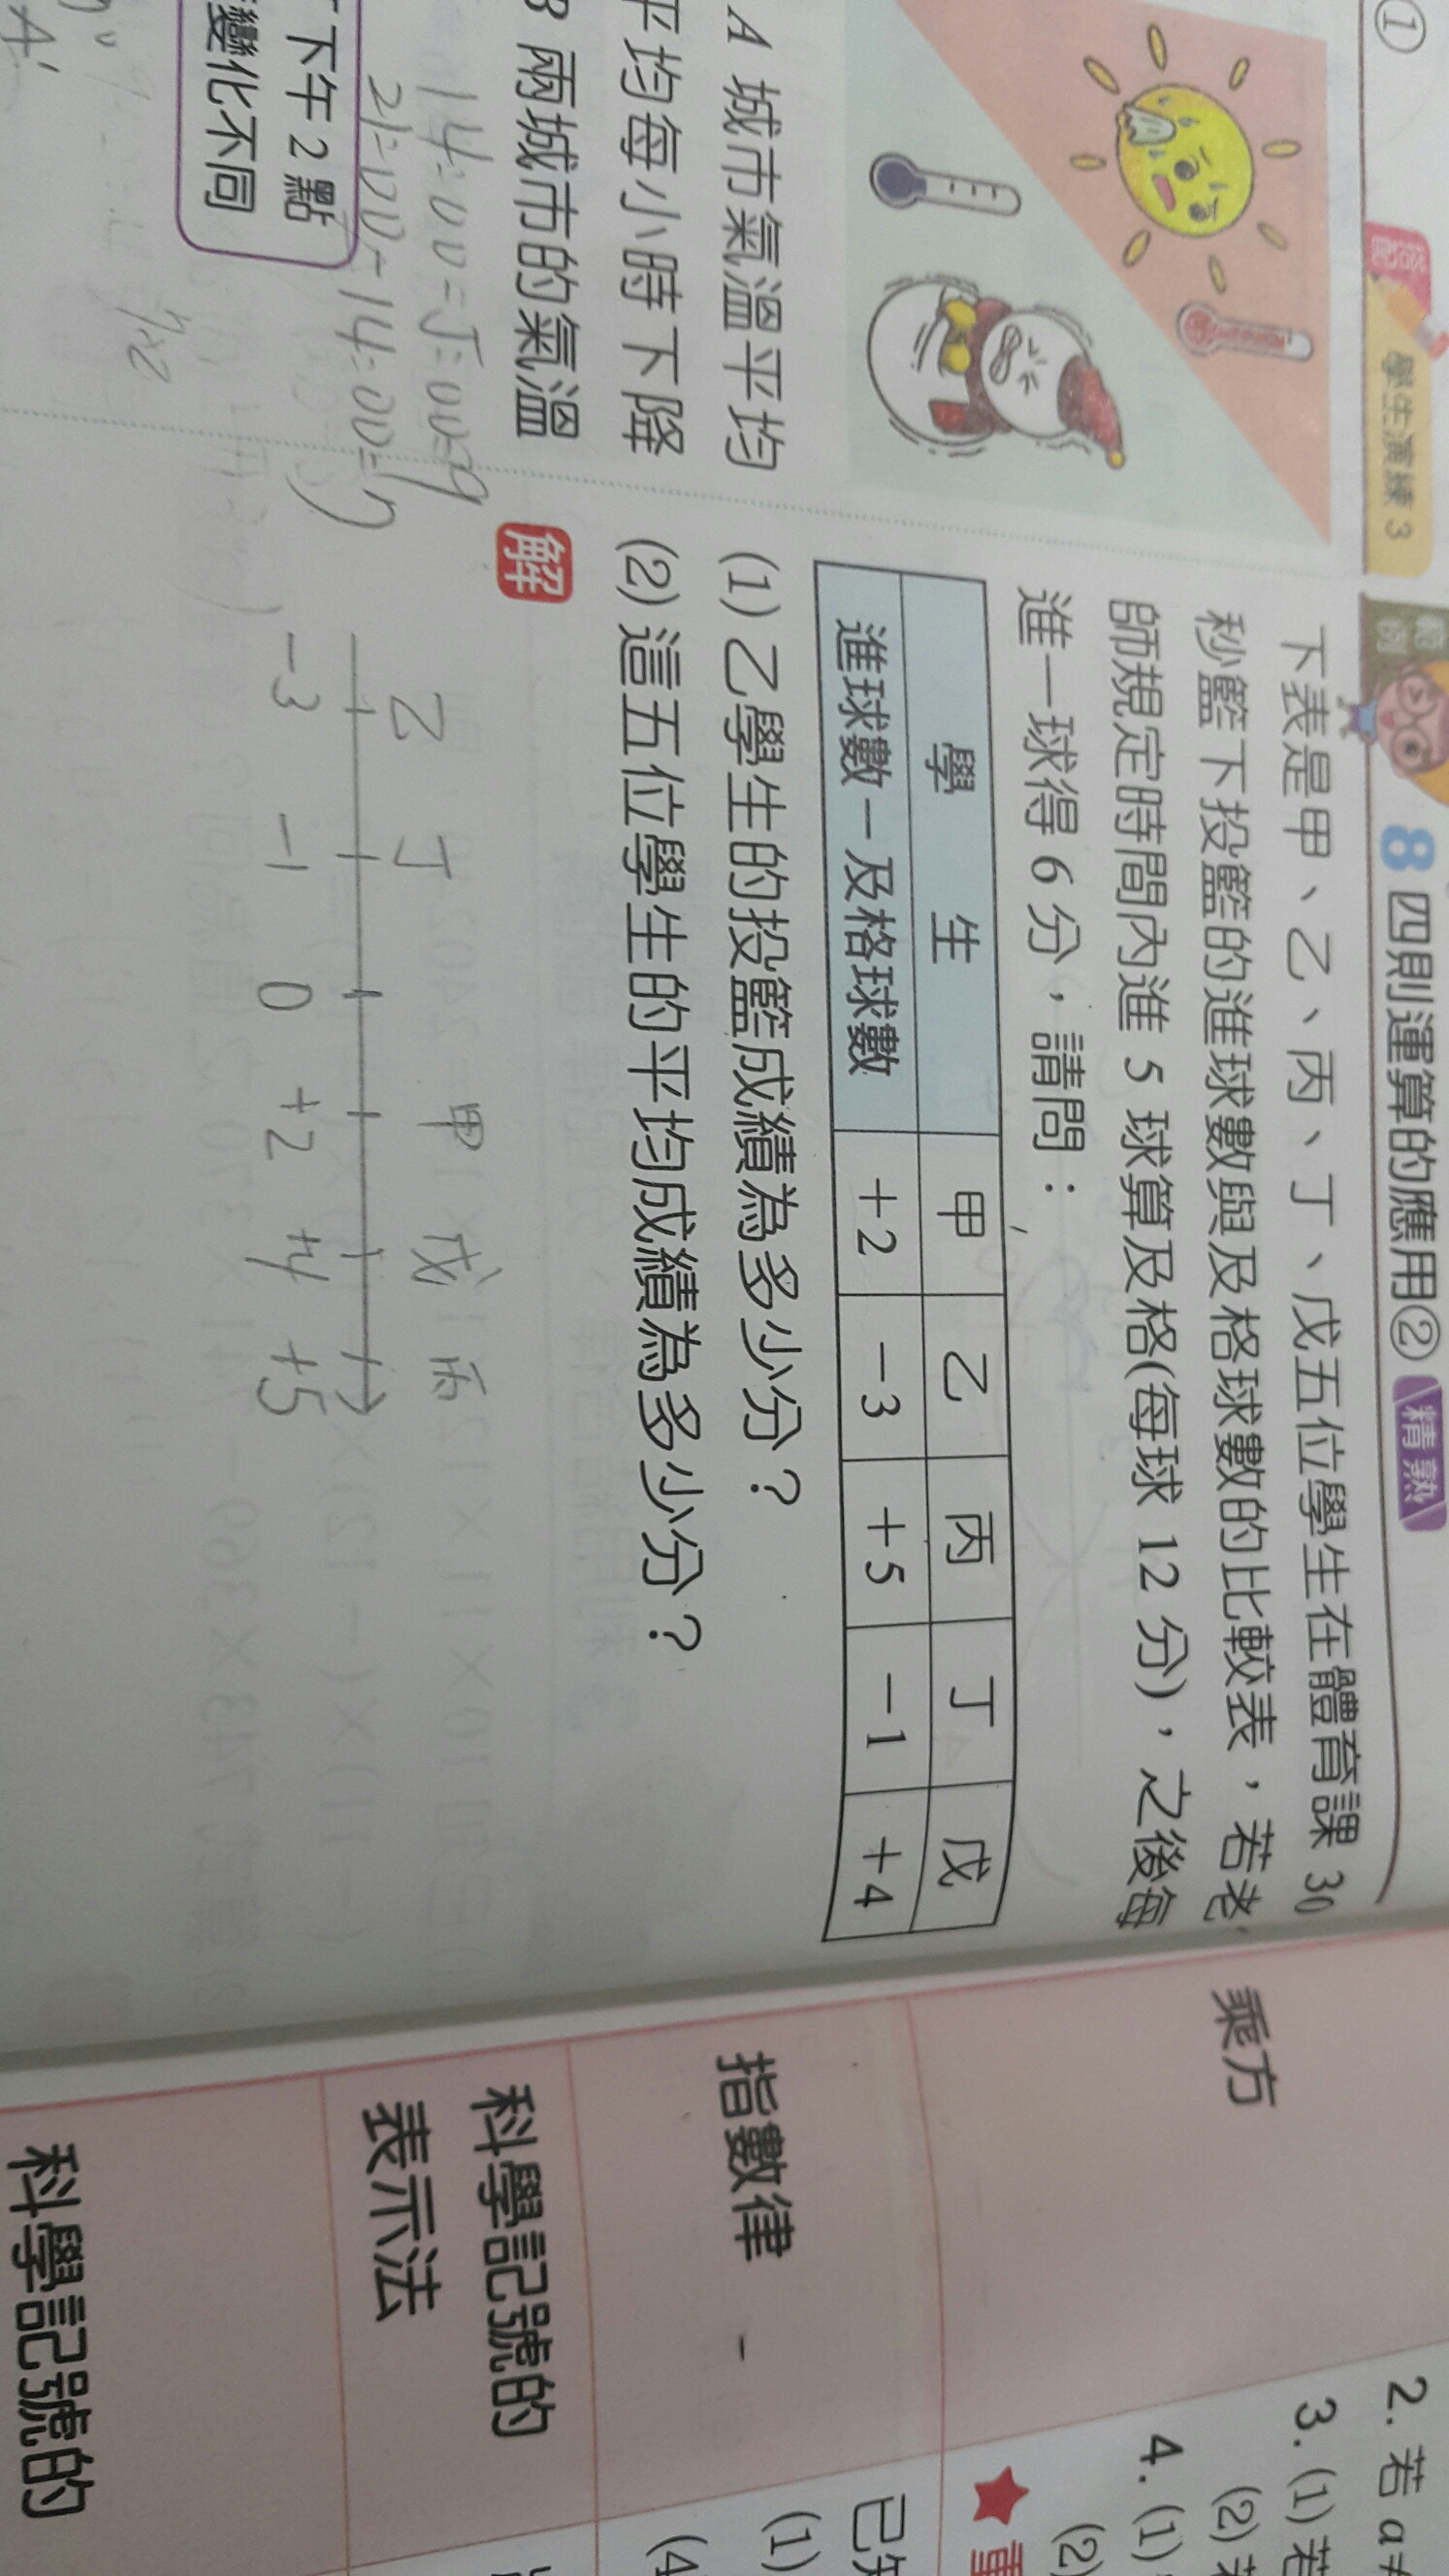 ①
學生演練 3
A 城市氣溫平均
平均每小時下降
B 兩城市的氣溫
14:00-5:00=9
21:00-14:00=7
下午 2 點
變化不同
8 四則運算的應用② 精熟
下表是甲、乙、丙、丁、戊五位學生在體育課 30
秒籃下投籃的進球數與及格球數的比較表,若老
師規定時間內進 5 球算及格(每球 12 分),之後每
進一球得 6 分,請問:
學 生 甲 乙 丙 丁 戊
進球數-及格球數 +2 -3 +5 -1 +4
(1) 乙學生的投籃成績為多少分?
(2) 這五位學生的平均成績為多少分?
解
乙 丁 甲 戊 丙
-3 -1 0 +2 +4 +5
乘方
指數律
科學記號的
表示法
科學記號的
2. 若 a≠
3. (1) 若
(2) 若
4. (1)
(2)
已知
(1)
(4